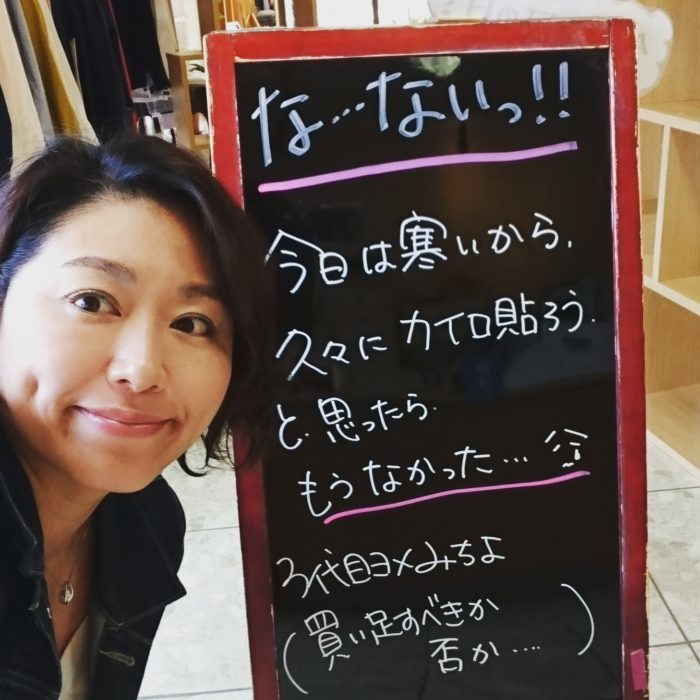 な…ないっ!!
今日は寒いから、
久々にカイロ貼ろう.
と.思ったら.
もうなかった…
3代目ヨメみちよ
(買い足すべきか
否か…. )